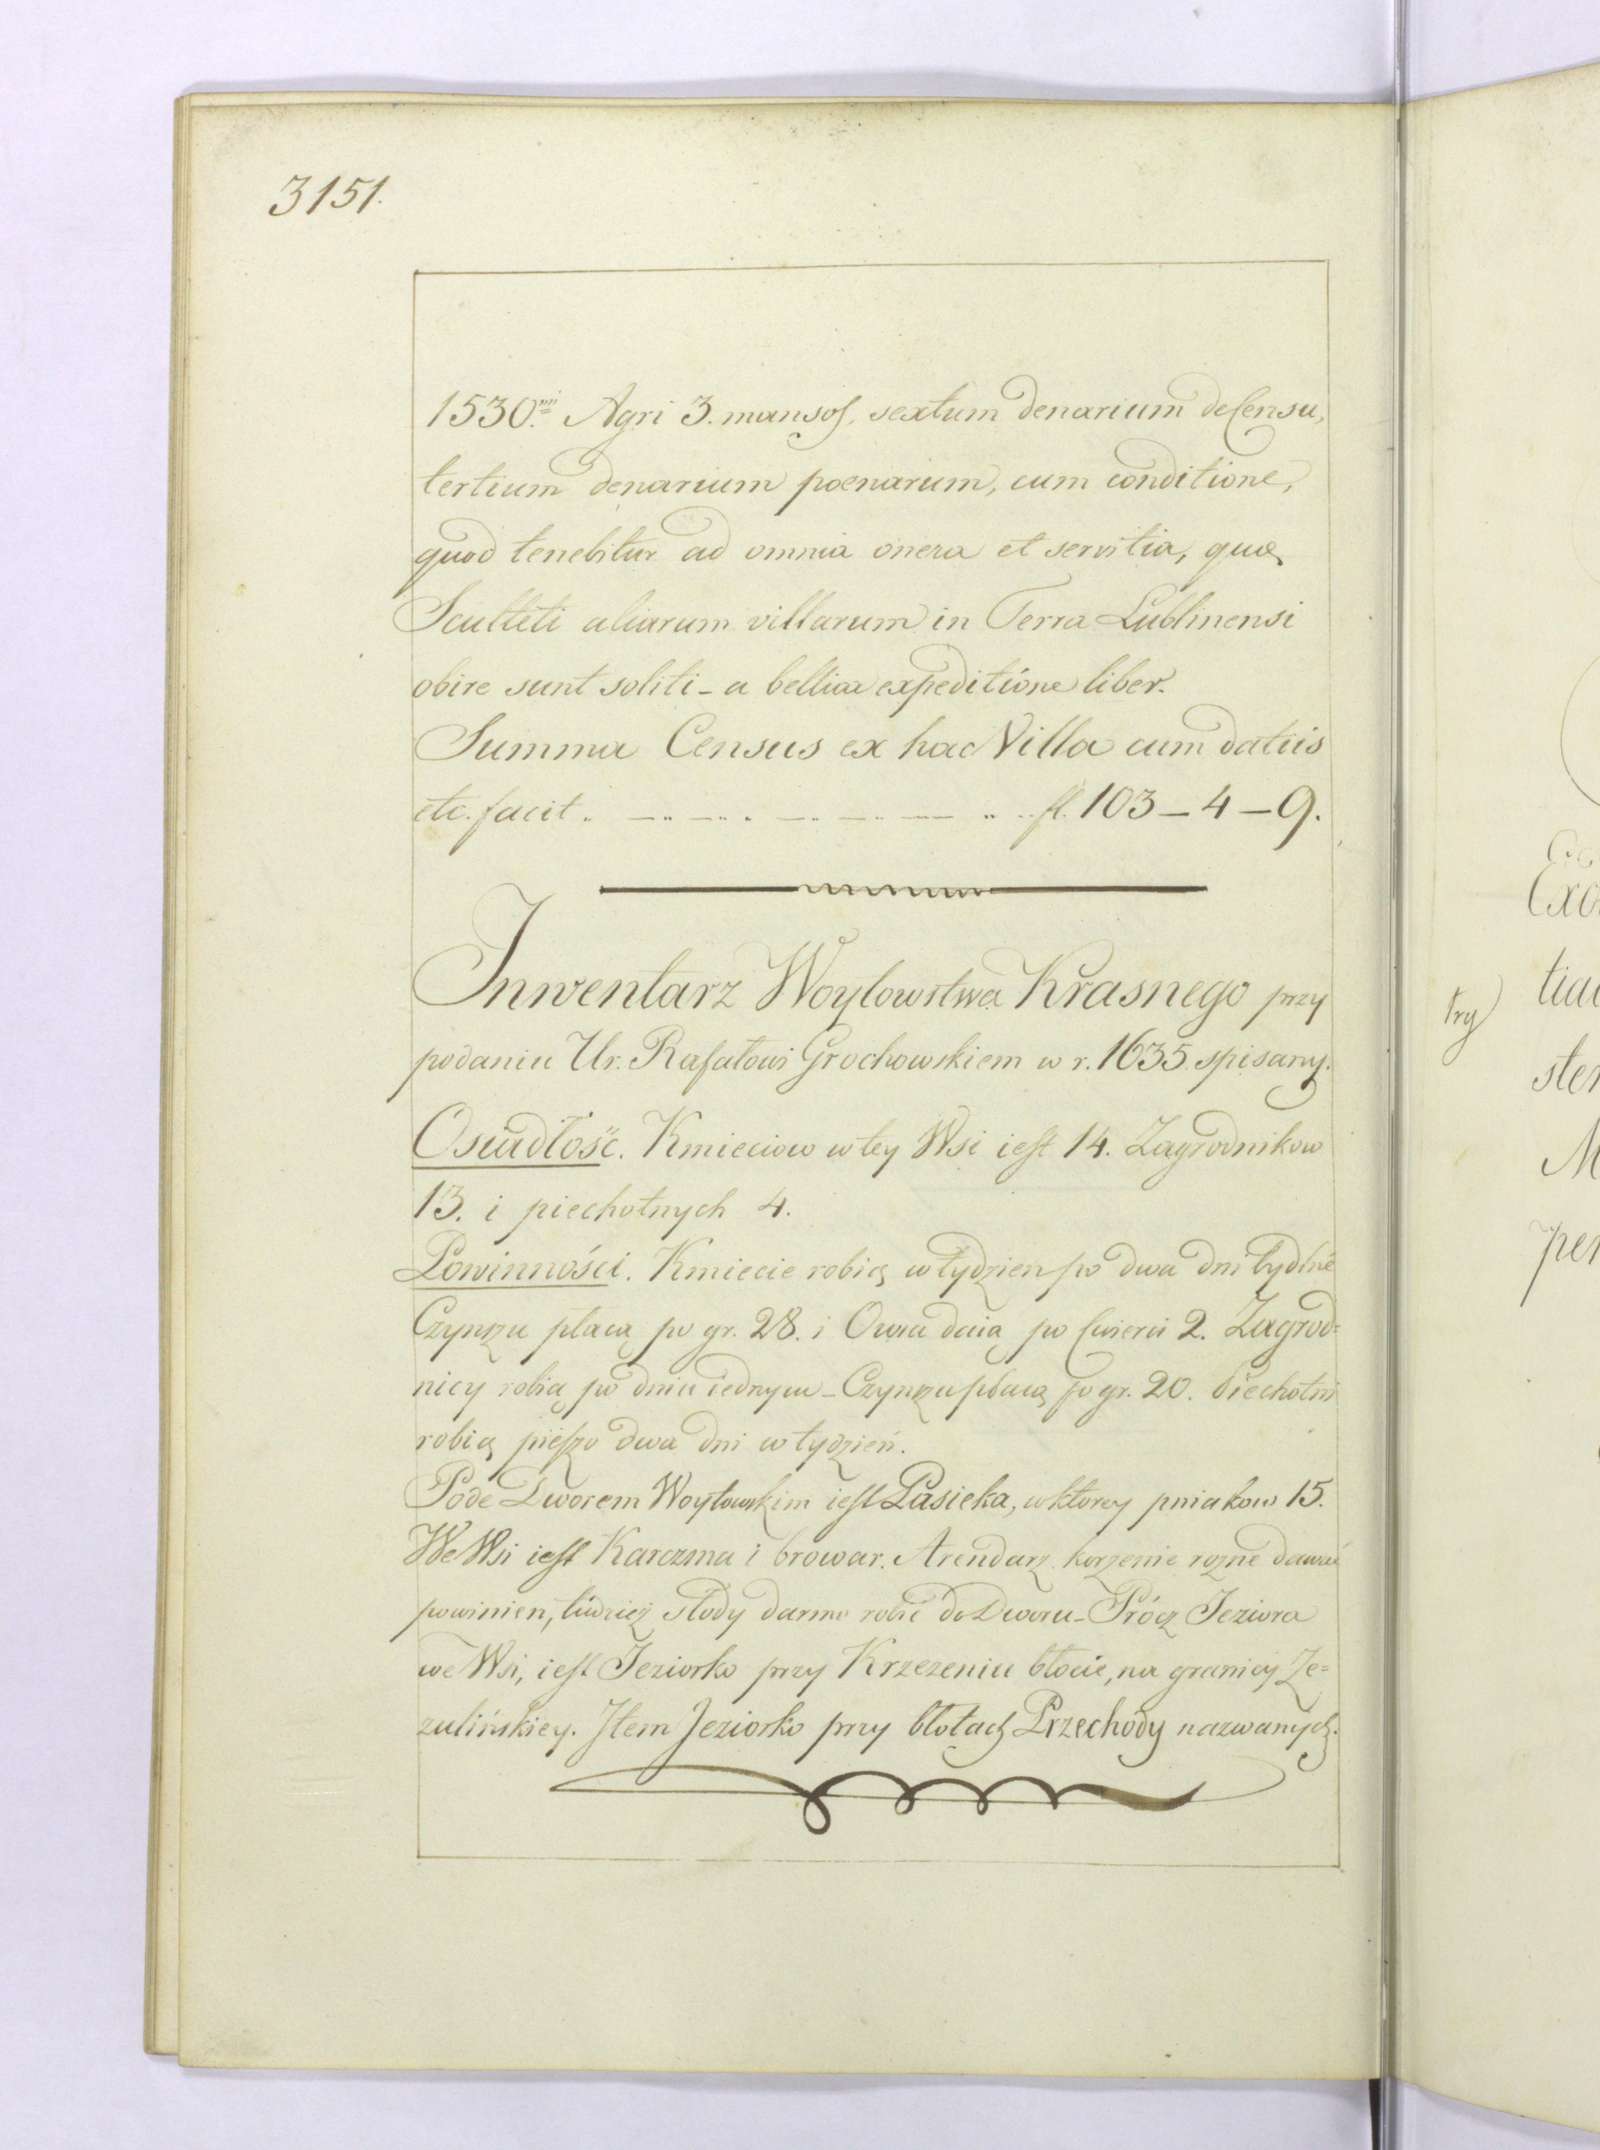 3151.
1530.mi Agri 3. mansos, sextum denarium de Censu,
tertium denarium poenarum, cum conditione,
quod tenebitur ad omnia onera et servitia, quæ
Sculteti aliarum villarum in Terra Lublinensi
obire sunt soliti - a bellica expeditione liber.
Summa Census ex hac Villa cum datiis
etc. facit . . . fl. 103 - 4 - 9.
Inwentarz Woytowstwa Krasnego przy
podaniu Ur. Rafałowi Grochowskiem w r. 1635. spisany.
Osiadłość. Kmieciow w tey Wsi iest 14. Zagrodnikow
13. i piechotnych 4.
Powinności. Kmiecie robią w tydzien po dwa dni bydłne
Czynszu płacą po gr. 28. i Owsa daią po Cwierci 2. Zagrod=
nicy robią po dniu iednym - Czynszu płacą po gr. 20. Piechotni
robią pieszo dwa dni w tydzień.
Pode Dworem Woytowskim iest Pasieka, w ktorey pniakow 15.
We Wsi iest Karczma i browar. Arendarz korzenie rozne dawać
powinien, tudzież słody darmo robić do Dworu - Prócz Jeziora
we Wsi, iest Jeziorko przy Krzezeniu błocie, na granicy Ze=
zulińskiey. Item Jeziorko przy błotach Przechody nazwanych.
try
Exo
tia
ster
M
per